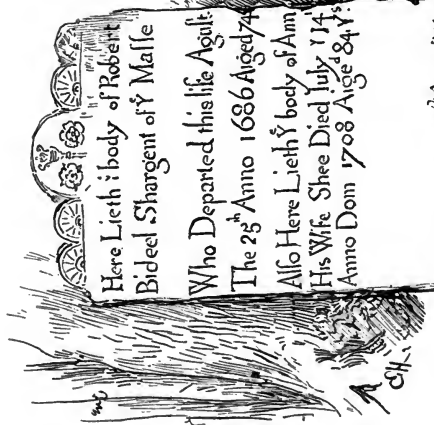 Here Lieth yᵉ body of Robert
Bideel Shargent of yᵉ Masse
Who Departed this life Agust
The 25ᵗʰ Anno 1686 Aiged 74
Allso Here Lieth yᵉ body of Ann
His Wife Shee Died July yᵉ 14
Anno Dom 1708 Aigeᵈ 84 Yˢ
CH